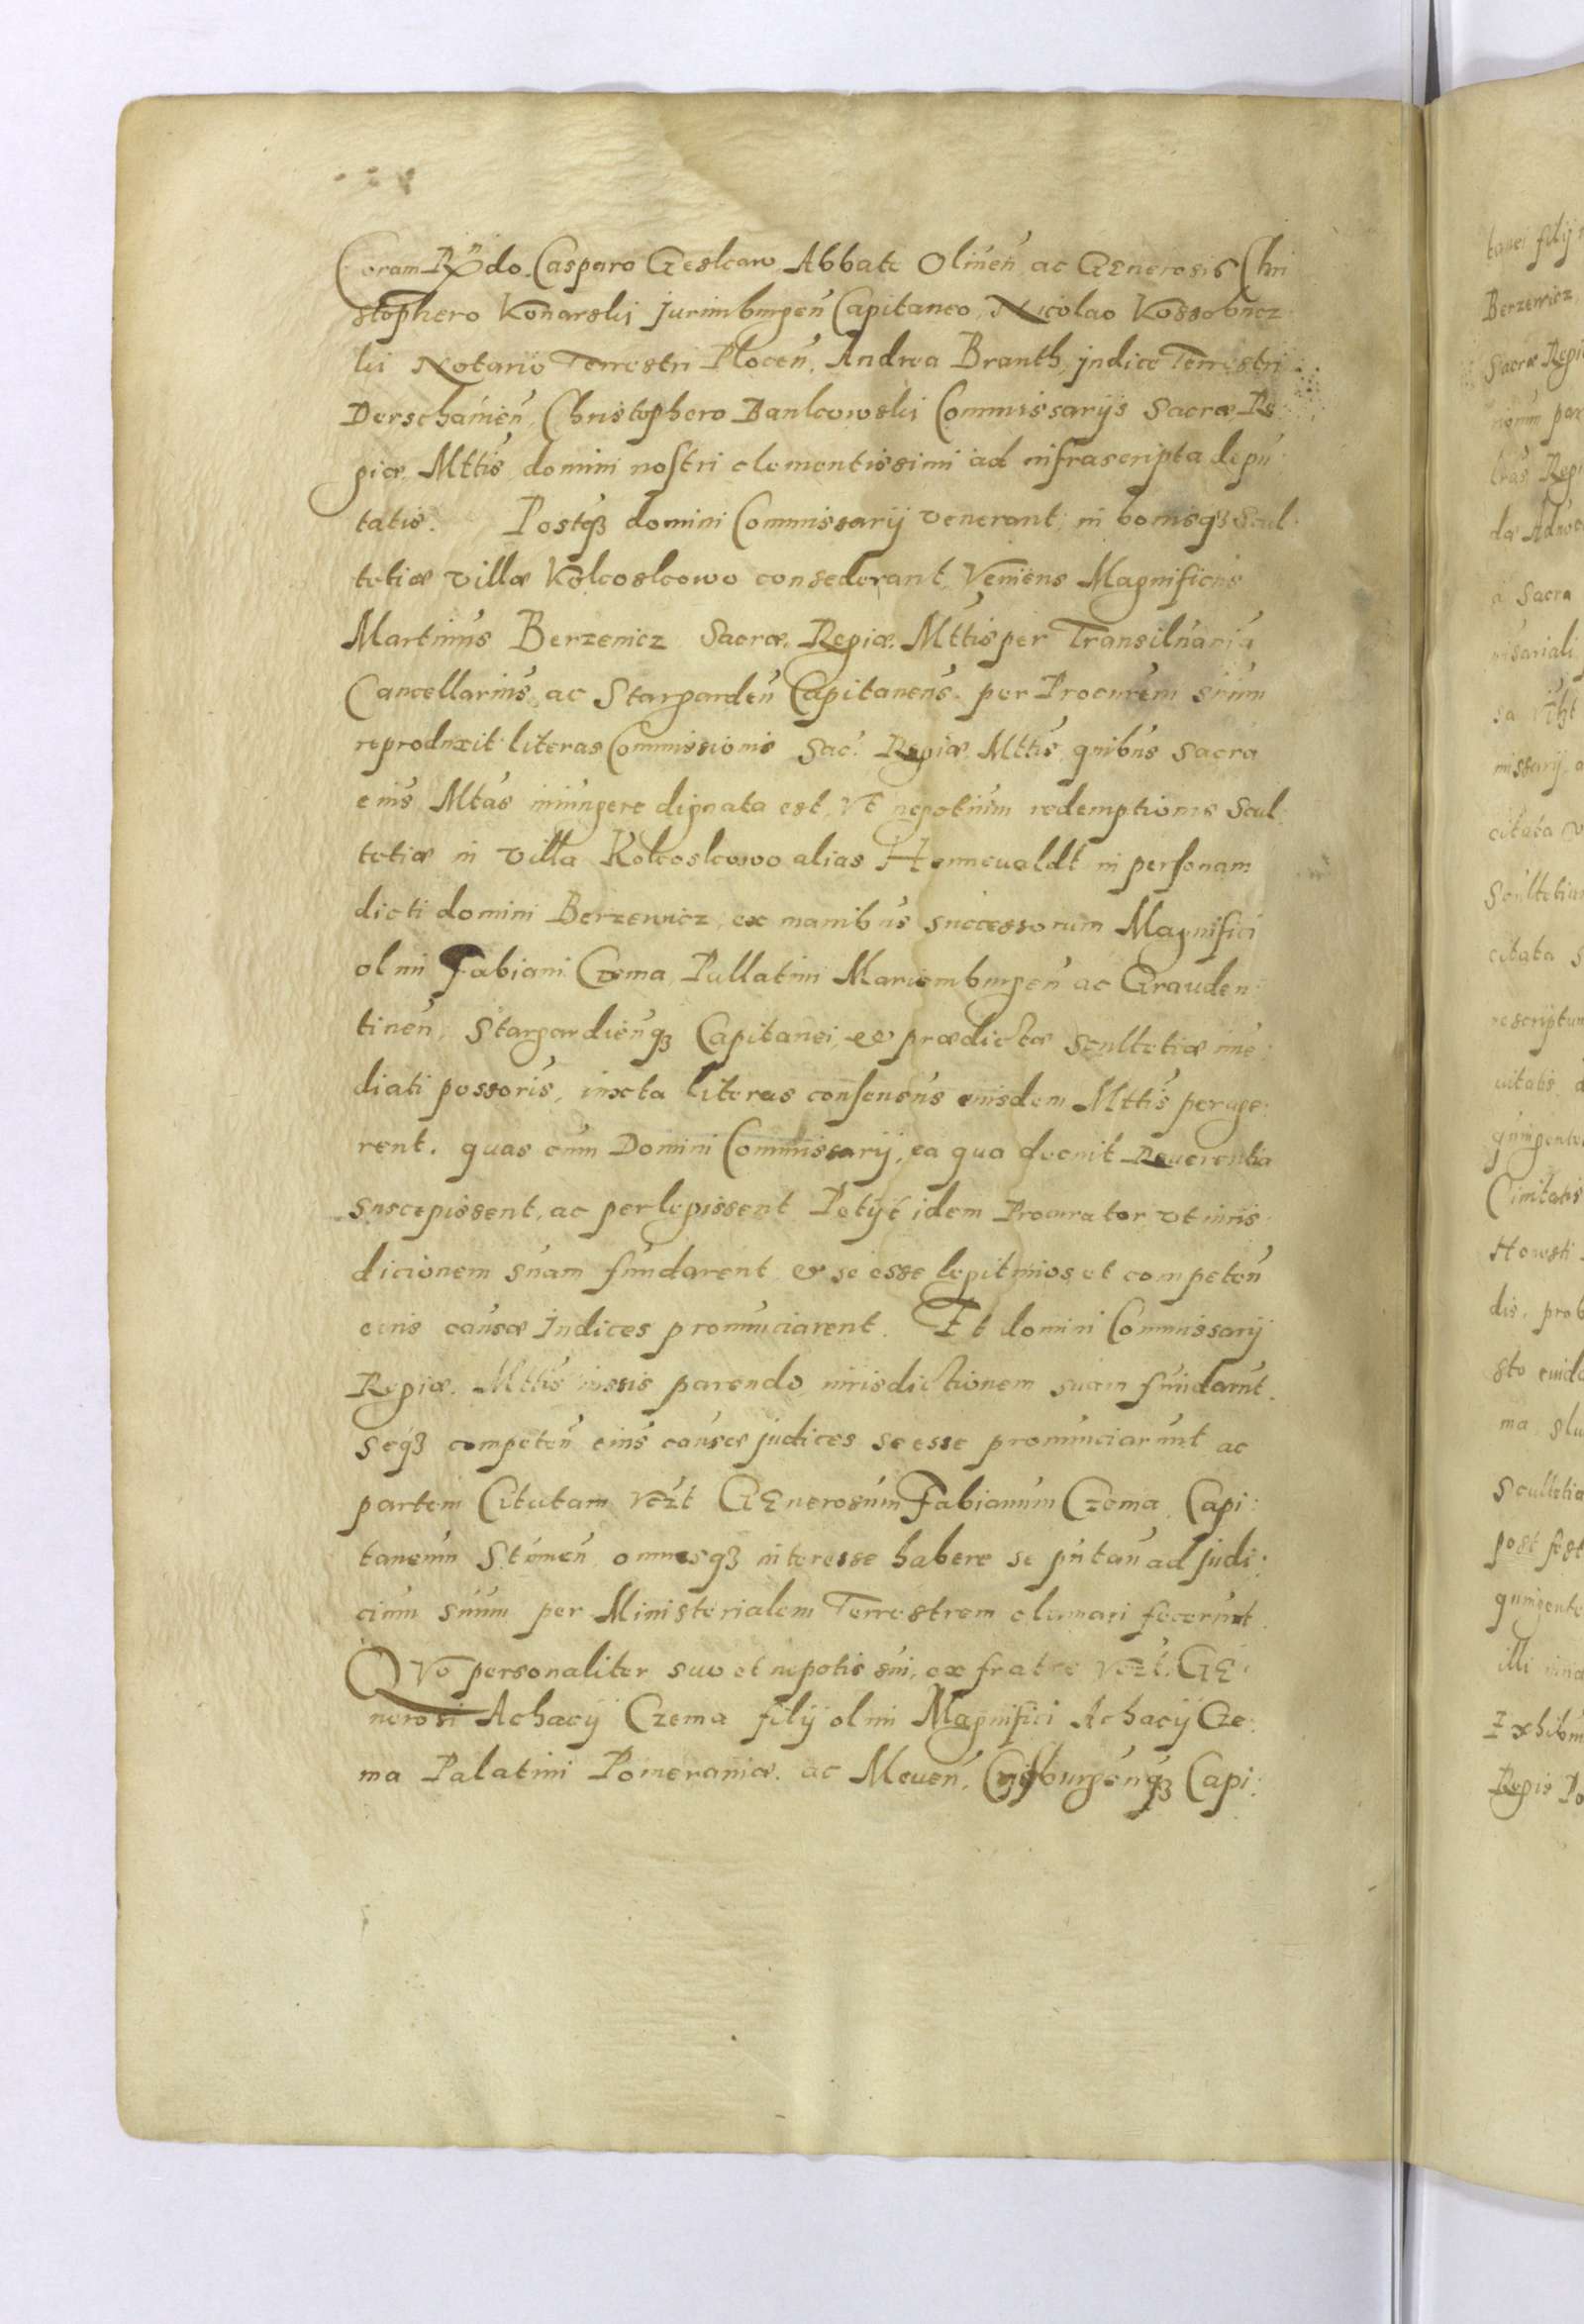 Coram Rx̃do Casparo Geskaw Abbate Oliuen̄ ac Generosis Chri
stophero Konarski jurimburgen̄ Capitaneo, Nicolao Kossobucz
ki Notario Terrestri Plocen̄, Andrea Branth judice Terrestri
Derschauien̄, Christophero Bankowski Commissarijs Sacræ Re
giæ Mttis domini nostri clementissimi ad infrascripta depu
tatis. Postq̃ʒ domini Commissarij venerant, in bonisqʒ Scul
tetiæ villæ Kokoskowo consederant, Veniens Magnificus
Martinus Berzeuicz Sacræ Regiæ Mttis per Transiluaniã
Cancellarius ac Stargarden̄ Capitaneus per Procurem suum
reproduxit literas Commissionis Sac: Regiæ Mttis quibus sacra
eius Mtas iniungere dignata est, vt negotium redemptionis Scul:
tetiæ in villa Kokoskowo alias Hennewaldt in personam
dicti domini Berzewicz, ex manibus successorum Magnifici
olim Fabiani Czema Pallatini Mariemburgen̄ ac Grauden:
tinen̄, Stargardien̄qʒ Capitanei, et prædictæ scultetiæ ime:
diati possoris, iuxta literas consensus eiusdem Mttis perage:
rent. quas cum Domini Commissarij, ea qua decuit Reuerentia
suscepissent, ac perlegissent Petijt idem Procurator vt iuris:
dicionem suam fundarent et se esse legitimos et competen̄
eius causæ Iudices pronunciarent. Et domini Commissarij
Regiæ Mttis iussis parendo, iurisdictionem suam fundarut.
seqʒ competen̄ eius causæ judices se esse pronunciarunt ac
partem Citatam vcz̃t Generosum Fabianum Czema Capi:
taneum Stumen̄ omnesqʒ interesse habere se putan̄ ad judi:
cium suum per Ministerialem Terrestrem clamari fecerunt.
Qvo personaliter suo et nepotis sui, ex fratre vcz̃t Ge:
nerosi Achacij Czema filij olim Magnifici Achacij Cze:
ma Palatini Pomeraniæ ac Meuen̄, Capi:
tanei filij
Berzewicz
Sacræ Regi
Regi
a Sacra
citata
citata
Scultetia
post fest
illi
Regis Po